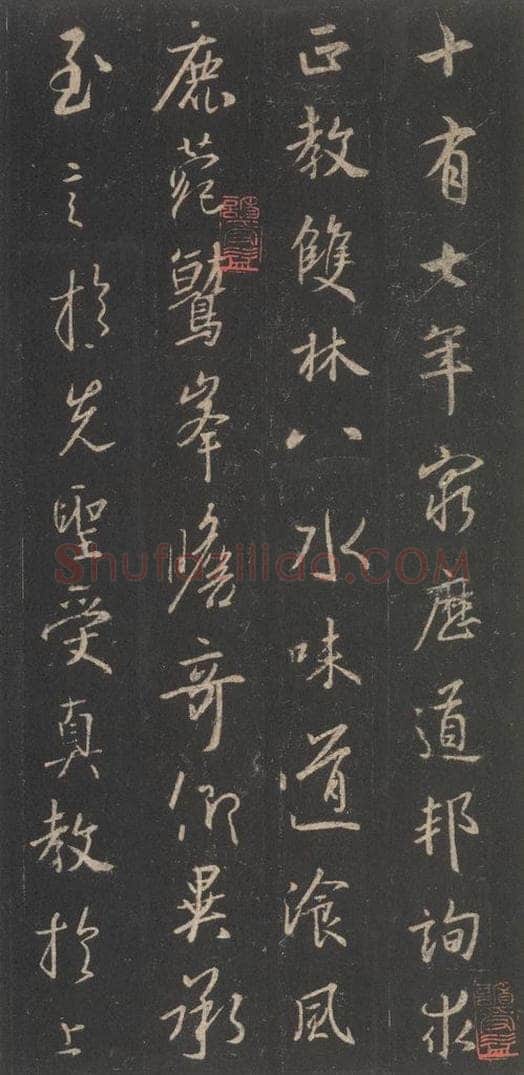 十有七年窮歷道邦詢求
正教雙林八水味道飡風
鹿菀鷲峯瞻奇仰異承
至言於先聖受真教於上
Shufaziliao.COM